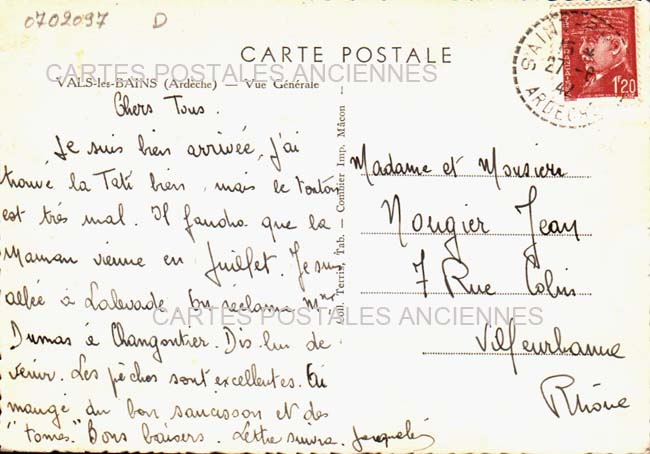 0702097 D
CARTE POSTALE
CARTES POSTALES ANCIENNES
VALS-les-BAINS (Ardèche) — Vue Générale
Chers Tous.
Je suis bien arrivée, j'ai
trouvé la Tati bien, mais le tonton
est très mal. Il faudra que la
Maman vienne en Juillet. Je suis
allée à Lalevade. On réclame Mme
Dumas à Changontier. Dis lui de
venir. Les pêches sont excellentes. J'ai
mangé du bon saucisson et des
"tomes". Bons baisers. Lettre suivra.
Coll. Terris, Tab. — Combier Imp. Mâcon —
CARTES POSTALES ANCIENNES
Madame et Monsieur
Nougier Jean
7 Rue Colin
Villeurbanne
Rhône
27
42
ARDECHE
1'20